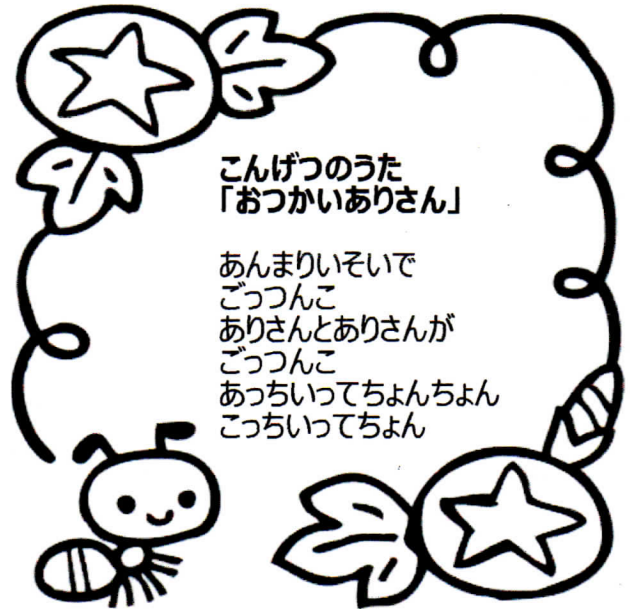 こんげつのうた
「おつかいありさん」
あんまりいそいで
ごっつんこ
ありさんとありさんが
ごっつんこ
あっちいってちょんちょん
こっちいってちょん